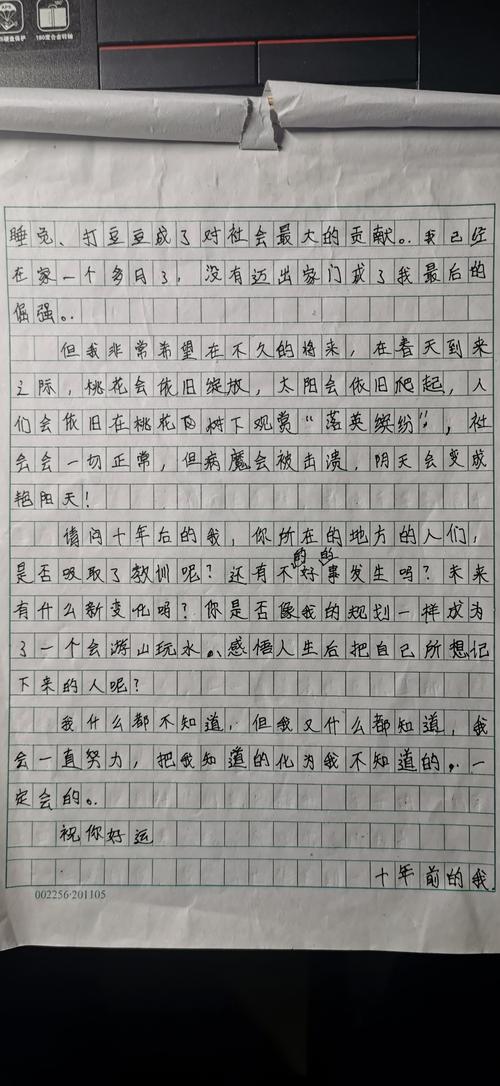 180度合金转轴
睡觉、打豆豆成了对社会最大的贡献。我已经
在家一个多月了，没有迈出家门成了我最后的
倔强。
但我非常希望在不久的将来，在春天到来
之际，桃花会依旧绽放，太阳会依旧爬起，人
们会依旧在桃花树下观赏“落英缤纷”，社
会会一切正常，但病魔会被击溃，阴天会变成
艳阳天！
请问十年后的我，你所在的地方的人们，
是否吸取了教训呢？还有不好的事发生吗？未来
有什么新变化吗？你是否像我的规划一样成为
了一个会游山玩水。感悟人生后把自己所想记
下来的人呢？
我什么都不知道，但我又什么都知道，我
会一直努力，把我知道的化为我不知道的。一
定会的。
祝你好运
十年前的我
002256·201105